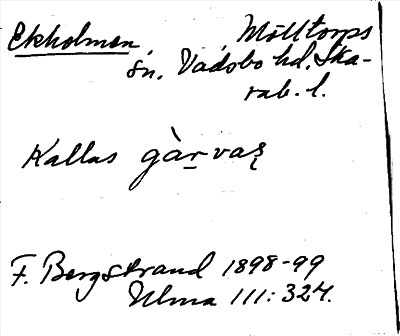 Ekholmen Mölltorps
sn. Vadsbo hd. Ska-
rab. l.
Kallas gàr̠vaş
F. Bergstrand 1898-99
Ulma 111:324.